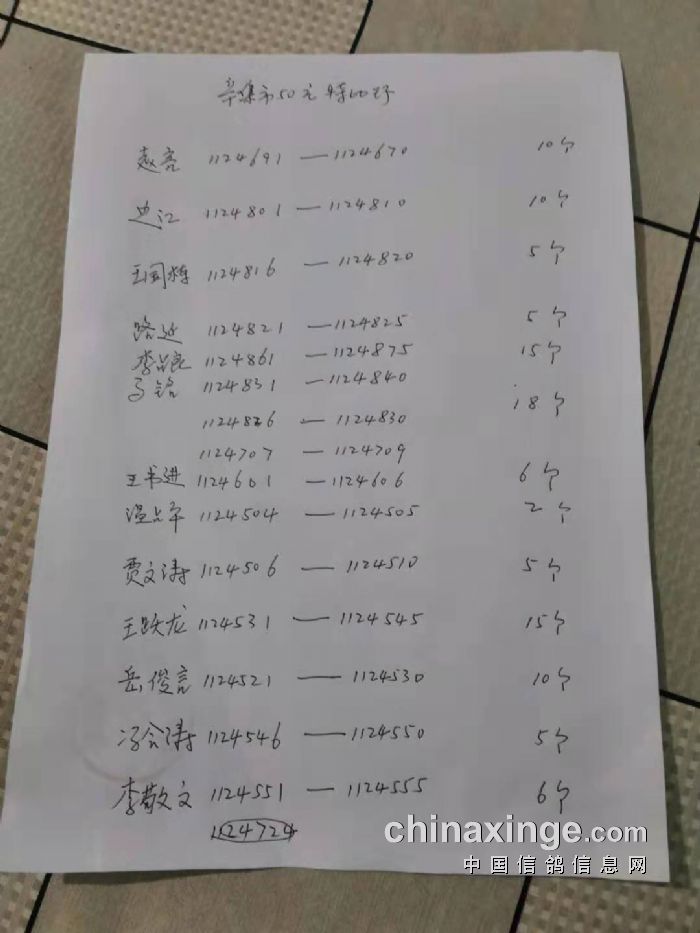 辛集市50元特比环
赵亮 1124691 — 1124670 10个
边江 1124801 — 1124810 10个
王同栋 1124816 — 1124820 5个
路近 1124821 — 1124825 5个
李 1124861 — 1124875 15个
马铭 1124831 — 1124840
1124826 — 1124830 18个
1124707 — 1124709
王书进 1124601 — 1124606 6个
温占军 1124504 — 1124505 2个
贾文涛 1124506 — 1124510 5个
王跃龙 1124531 — 1124545 15个
岳俊言 1124521 — 1124530 10个
冯会涛 1124546 — 1124550 5个
李敬文 1124551 — 1124555 6个
1124724
chinaxinge.com
中国信鸽信息网